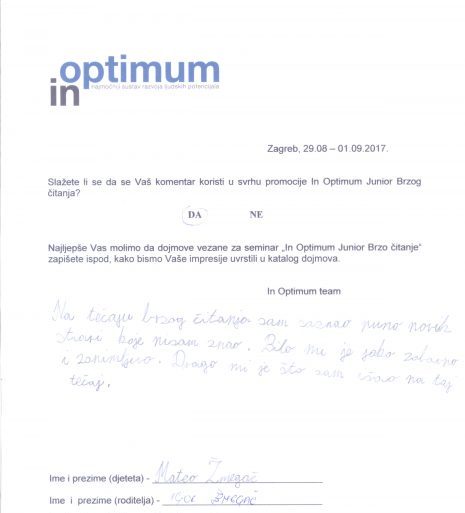 in optimum
najmoćniji sustav razvoja ljudskih potencijala
Zagreb, 29.08 – 01.09.2017.
Slažete li se da se Vaš komentar koristi u svrhu promocije In Optimum Junior Brzog
čitanja?
DA NE
Najljepše Vas molimo da dojmove vezane za seminar „In Optimum Junior Brzo čitanje“
zapišete ispod, kako bismo Vaše impresije uvrstili u katalog dojmova.
In Optimum team
Na tečaju brzog čitanja sam saznao puno novih
stvari koje nisam znao. Bilo mi je jako zabavno
i zanimljivo. Drago mi je što sam išao na taj
tečaj.
Ime i prezime (djeteta) - Mateo Žmegač
Ime i prezime (roditelja) - ŽMEGAČ